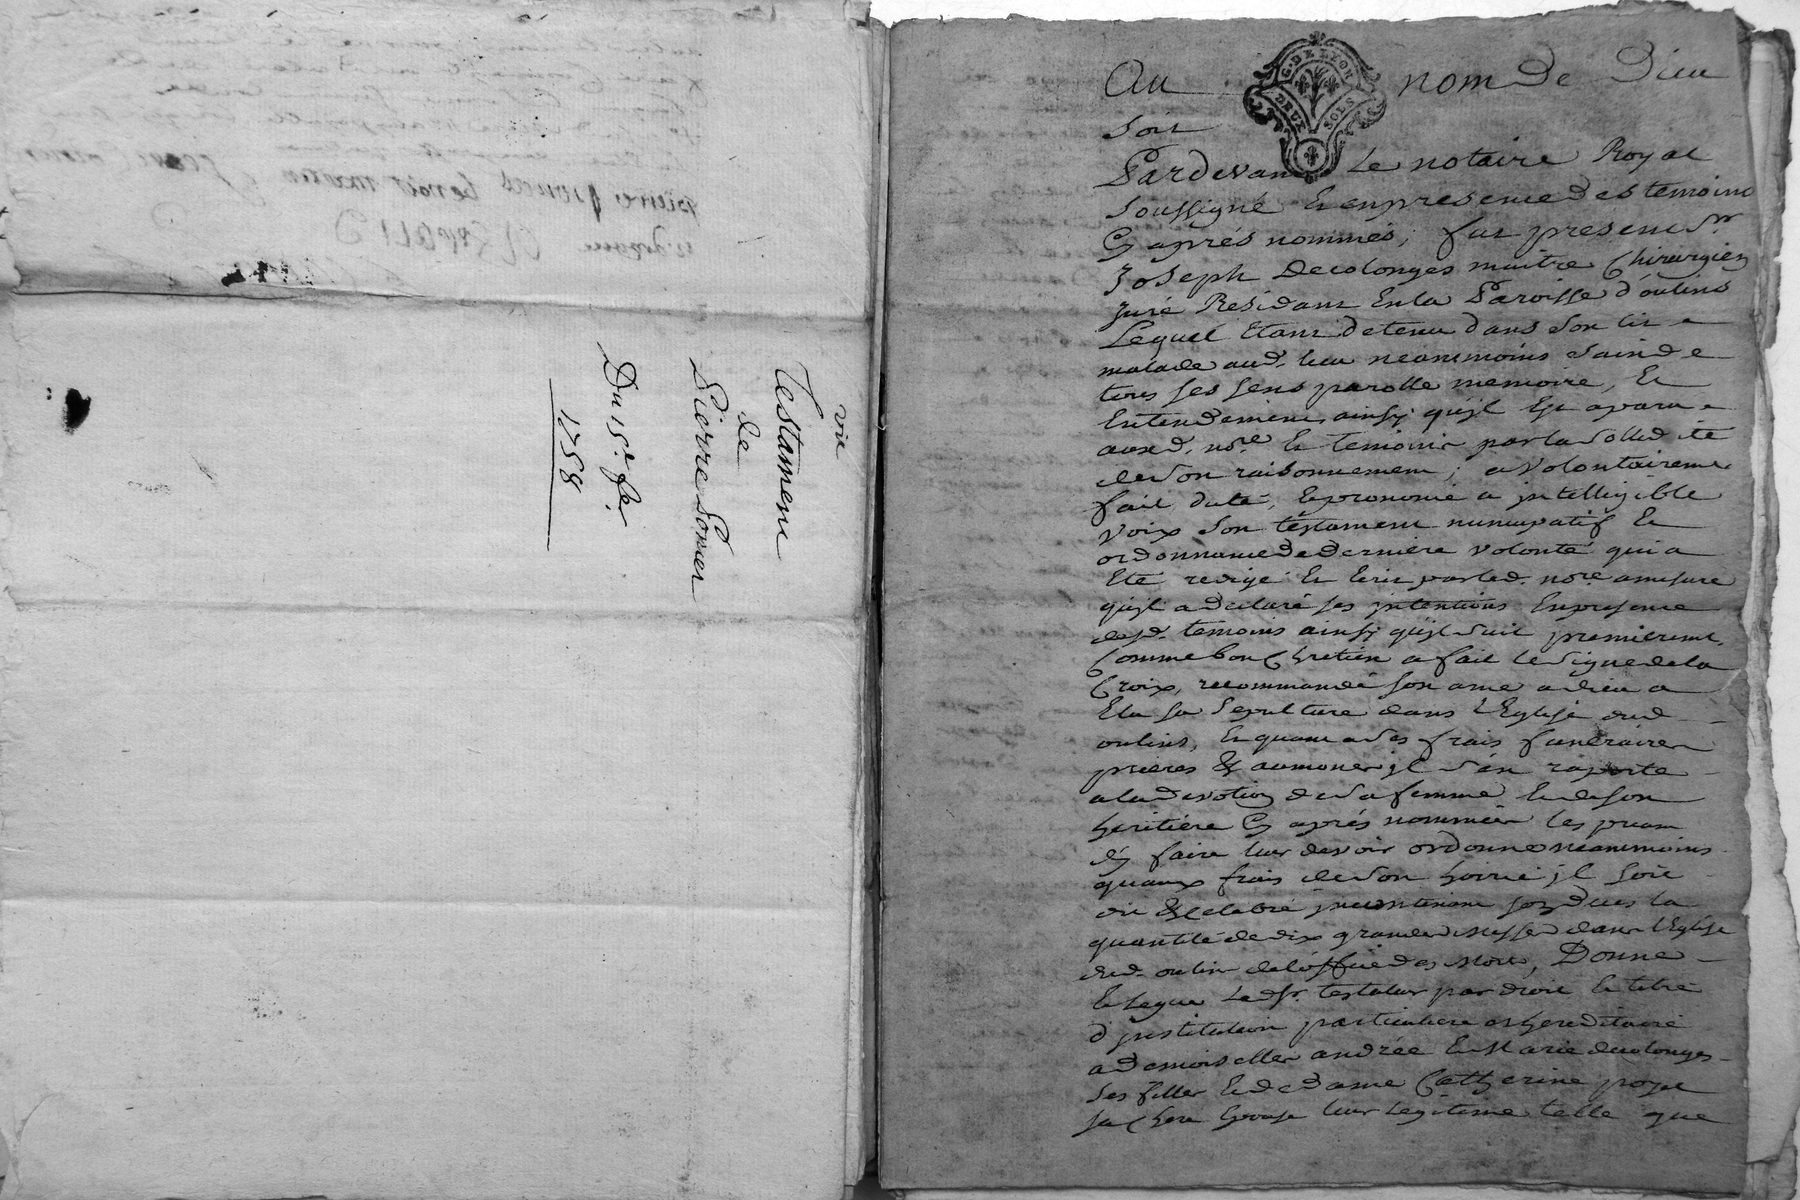 vic
Testament
de
Pierre Poncer
Du 15e. fe.
1758
G. DE LYON
DEUX SOLS
Au nom de Dieu
Soit
Pardevant Le notaire Royal
Soussigné Et en presence des temoins
Cy aprés nommés, fut present Sr.
Joseph Decolonges maitre Chirurgien
Juré Residant En la Paroisse d'oulins
Lequel Etant detenu dans Son lit
malade aud. lieu neammoins Sain de
tous ses sens parolle memoire, Et
Entendement ainsy qu'jl Est aparu
auxd. nore. Et temoins par la Sollidité
de Son raisonnement; a volontairemt
fait dicté, Et prononcé a jntelligible
voix Son testament nuncupatif Et
ordonnance de derniere volonté qui a
Eté redigé Et Ecrit par led. nore. amesure
qu'jl a declaré ses jntentions En presence
desd. temoins ainsy qu'jl suit premieremt.
Comme bon Chretien a fait le signe de la
Croix, recommandé son ame a dieu a
Elu sa Sepulture dans l'Eglise dud.
oulins, Et quant a ses frais funeraires
prieres & aumones jl s'en raporte
a la devotion de sa femme Et de son
heritiére Cy aprés nommées les priant
d'y faire leur devoir ordonne neammoins
quaux frais de son hoirie jl soit
dit & celebré jncontinent son deces la
quantité de dix grandes Messes dans l'Eglise
dud. oulin de l'office des Morts, Donne
Et Legue Led. Sr. testateur par droit Et titre
d'jnstitution particuliere et hereditaire
a demoiselles andrée Et Marie decolonges
ses filles Et de dame Catherine
sa Chere Epouse leur Legitime telle que